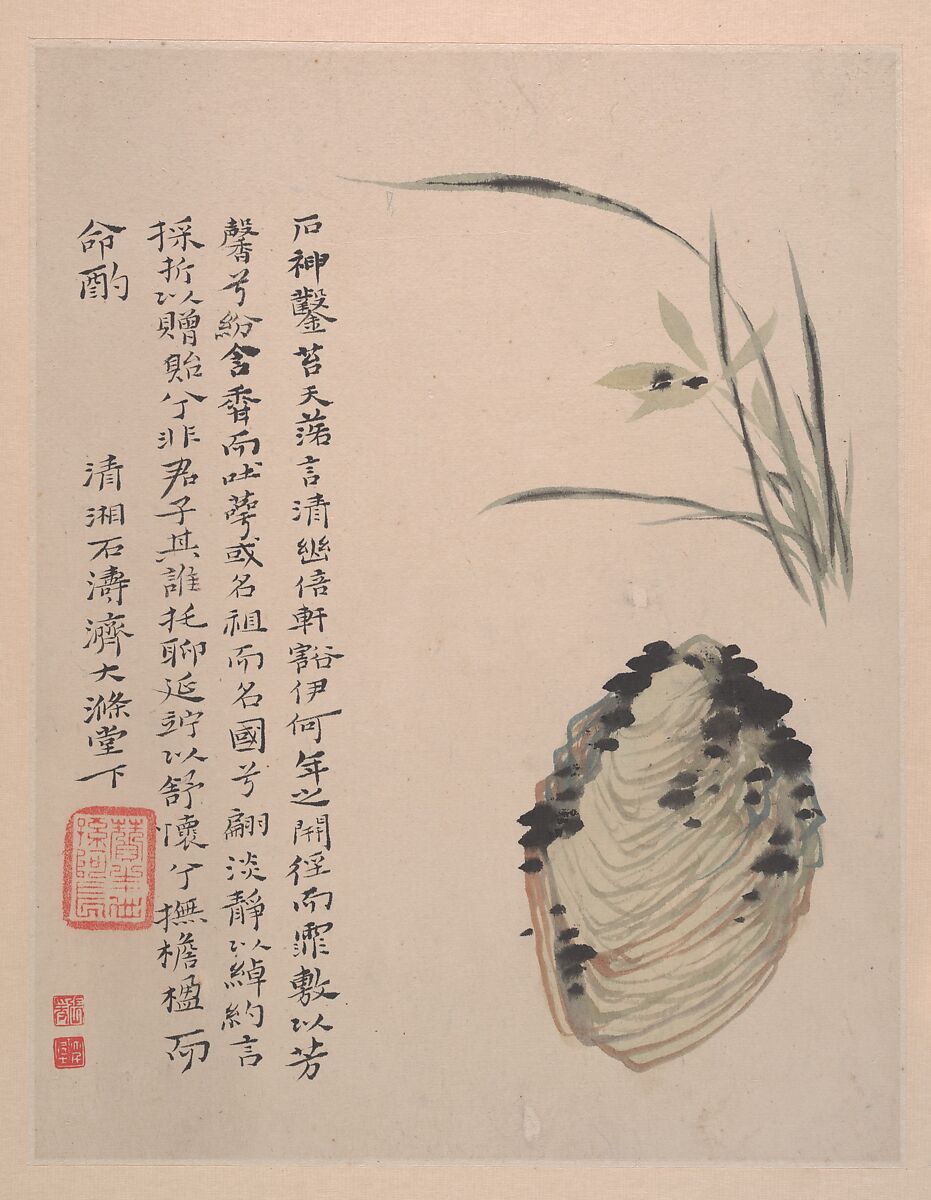 石神鑿苔天落言清幽倍軒豁伊何年之開徑而霏敷以芳
馨兮紛含香而吐萼或名祖而名國兮翩淡靜以綽約言
採折以贈貽兮非君子其誰托聊延竚以舒懷兮撫檐楹而
命酌
清湘石濤濟大滌堂下